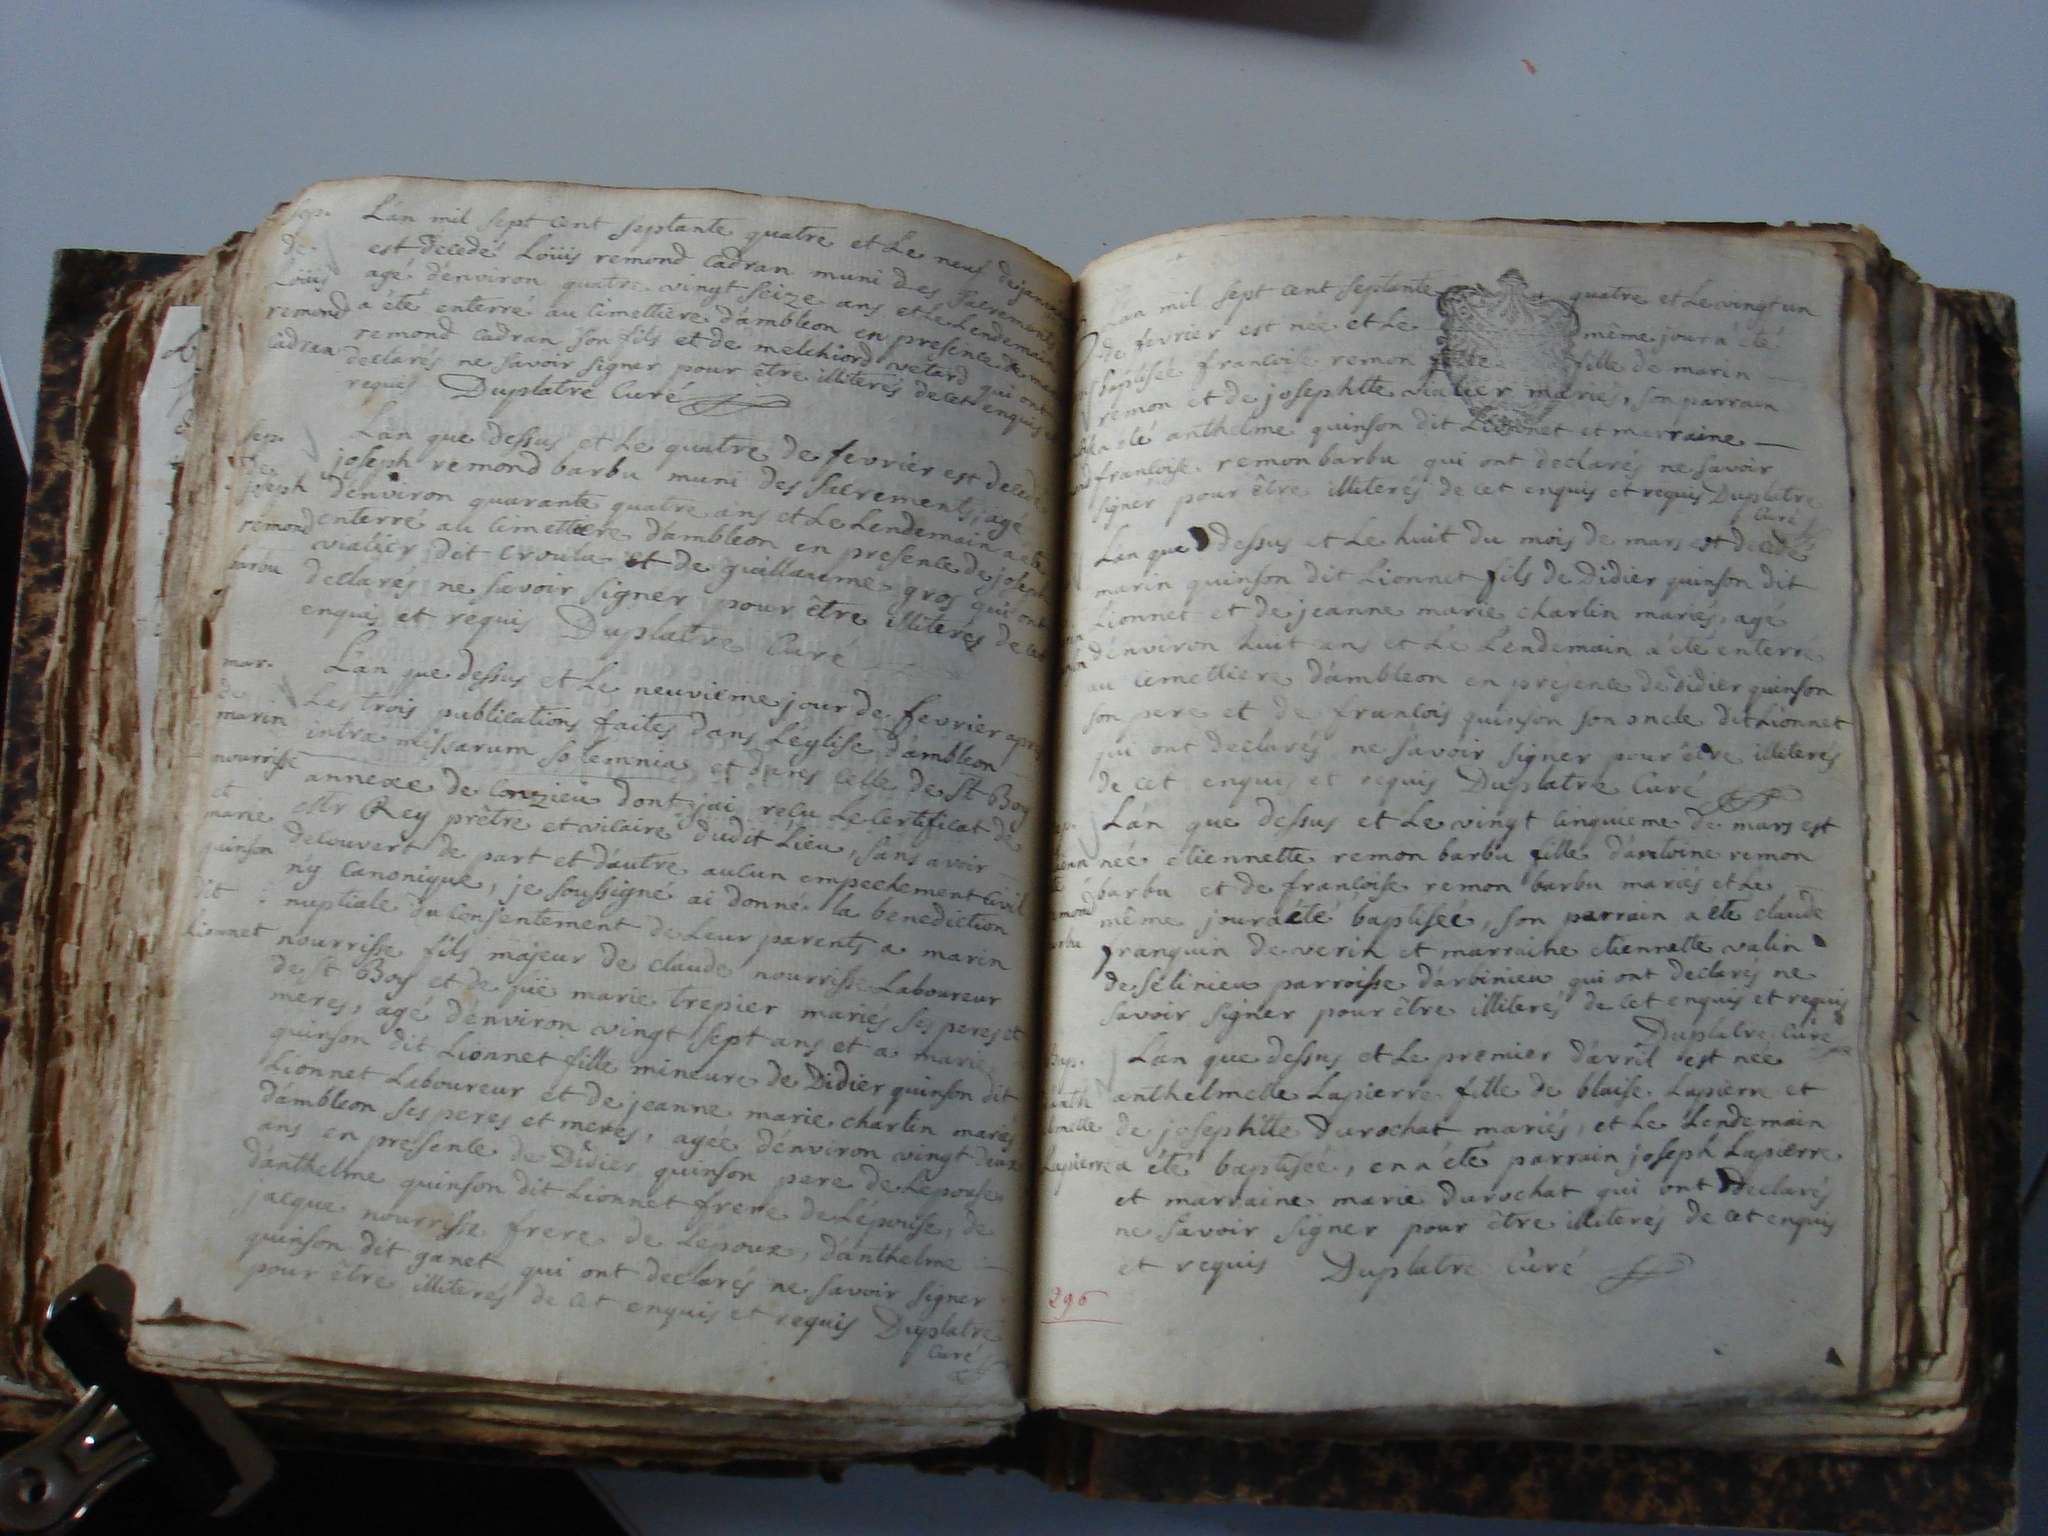 sep.
de
Loüis
remond
cadran
L'an mil sept cent septante quatre et Le neuf de janvier
est decedé Loüis remond cadran muni des Sacrements
agé d'environ quatre vingt seize ans et Le Lendemain
a été enterré au cimettiere d'ambleon en presence de
remond cadran son fils et de melchiord vetard qui ont
declarés ne savoir signer pour être illiterés de cet enquis et
requis Duplatre Curé
sep.
de
joseph
remond
barbu
L'an que dessus et Le quatre de fevrier est decedé
joseph remond barbu muni des sacrements, agé
d'environ quarante quatre ans et Le Lendemain a été
enterré au cimettiere d'ambleon en presence de joseph
vialier dit et de guillaume gros qui ont
declarés ne savoir signer pour être illiterés de cet
enquis et requis Duplatre Curé
mar.
de
marin
nourrisse
et
marie
quinson
dit
Lionnet
L'an que dessus et Le neuvieme jour de fevrier après
Les trois publications faites dans L'église d'ambleon
intra missarum solemnia, et dans celle de St Boy
annexe de conzieu dont j'ai reçu Le Certificat de
Rey prêtre et vicaire dudit Lieu, sans avoir
decouvert de part et d'autre aucun empechement civil
n'y canonique, je soussigné ai donné la benediction
nuptiale du consentement de Leur parents a marin
nourrisse fils majeur de claude nourrisse Laboureur
de St Boy et de marie trepier mariés ses peres et
meres, agé d'environ vingt sept ans et a marie
quinson dit Lionnet fille mineure de Didier quinson dit
Lionnet Laboureur et de jeanne marie charlin mariés
d'ambleon ses peres et meres, agée d'environ vingt deux
ans en presence de Didier quinson pere de L'epouse
d'anthelme quinson dit Lionnet frere de L'épouse, de
jacque nourrisse frere de L'époux, d'anthelme
quinson dit ganet qui ont declarés ne savoir signer
pour être illiterés de cet enquis et requis Duplatre
Curé
L'an mil sept cent septante quatre et Le vingt un
de fevrier est née et Le même jour a été
baptisée francoise remon fille de marin
remon et de josephtte vialier mariés, son parrain
a été anthelme quinson dit Lionnet et marraine
francoise remon barbu qui ont declarés ne savoir
signer pour être illiterés de cet enquis et requis Duplatre
Curé
L'an que dessus et Le huit du mois de mars est decedé
marin quinson dit Lionnet fils de Didier quinson dit
Lionnet et de jeanne marie charlin mariés, agé
d'environ huit ans et Le Lendemain a été enterré
au cimettiere d'ambleon en presence de Didier quinson
son pere et de francois quinson son oncle dit Lionnet
qui ont declarés ne savoir signer pour être illiterés
de cet enquis et requis Duplatre Curé
L'an que dessus et Le vingt cinquieme de mars est
née etiennette remon barbu fille d'antoine remon
barbu et de francoise remon barbu mariés et Le
même jour a été baptisée, son parrain a été claude
ranguin de verin et marraine etiennette valin
de selinieu parroisse d'arbinieu qui ont declarés ne
savoir signer pour être illiterés de cet enquis et requis
Duplatre Curé
Bap.
anth
elmette
Lapierre
L'an que dessus et Le premier d'avril est née
anthelmette Lapierre fille de blaise Lapierre et
de josephtte Durochat mariés, et Le Lendemain
a été baptisée, en a été parrain joseph Lapierre
et marraine marie Durochat qui ont declarés
ne savoir signer pour être illiterés de cet enquis
et requis Duplatre Curé
296